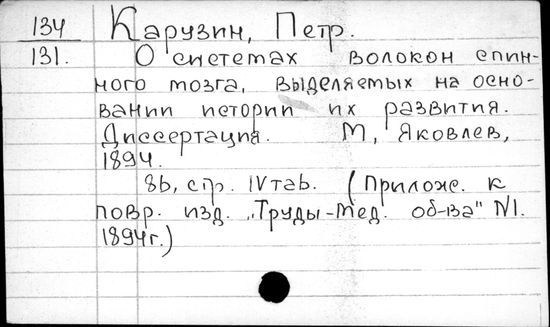 134 Карузин, Петр.
131. О системах волокон спин-
ного мозга, выделяемых на осно-
вании истории их развития.
Диссертация. М, Яковлев,
1894.
86, стр. IV таб. (Приложе. к
повр. изд. „Труды-мед. об-ва" N1.
1894г.)